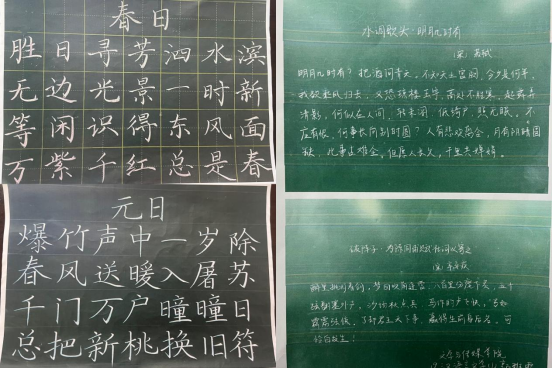 春日
胜日寻芳泗水滨
无边光景一时新
等闲识得东风面
万紫千红总是春
水调歌头·明月几时有
(宋)苏轼
明月几时有？把酒问青天。不知天上宫阙，今夕是何年。
我欲乘风归去，又恐琼楼玉宇，高处不胜寒。起舞弄
清影，何似在人间。转朱阁，低绮户，照无眠。不
应有恨，何事长向别时圆？人有悲欢离合，月有阴晴圆
缺，此事古难全。但愿人长久，千里共婵娟。
元日
爆竹声中一岁除
春风送暖入屠苏
千门万户曈曈日
总把新桃换旧符
破阵子·为陈同甫赋壮词以寄之
(宋)辛弃疾
醉里挑灯看剑，梦回吹角连营。八百里分麾下炙，五十
弦翻塞外声，沙场秋点兵。马作的卢飞快，弓如
霹雳弦惊。了却君王天下事，赢得生前身后名。可
怜白发生！
文学与传媒学院